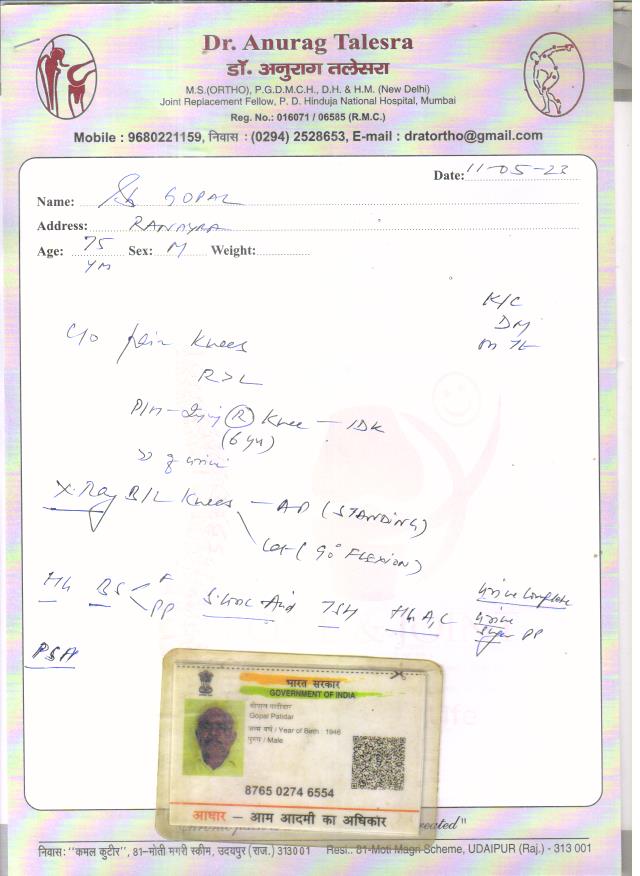 Dr. Anurag Talesra
डॉ. अनुराग तलेसरा
M.S.(ORTHO), P.G.D.M.C.H., D.H. & H.M. (New Delhi)
Joint Replacement Fellow, P. D. Hinduja National Hospital, Mumbai
Reg. No.: 016071 / 06585 (R.M.C.)
Mobile : 9680221159, निवास : (0294) 2528653, E-mail : dratortho@gmail.com
Date: 11-05-23
Name: GOPAL
Address:
Age: 75 Sex: M Weight:
K/C
DM
C/o pain Knees
R>L
Knee
X-Ray B/L Knees - AP (STANDING)
Lat (90° FLEXION)
Hb BS F PP S. Uric Acid TSH HbA1C Urine Complete
Urine Sugar PP
PSA
भारत सरकार
GOVERNMENT OF INDIA
गोपाल पाटीदार
Gopal Patidar
जन्म वर्ष / Year of Birth : 1946
पुरुष / Male
8765 0274 6554
आधार – आम आदमी का अधिकार
निवास: "कमल कुटीर", 81-मोती मगरी स्कीम, उदयपुर (राज.) 313001 Resi.: 81-Moti Magri Scheme, UDAIPUR (Raj.) - 313 001